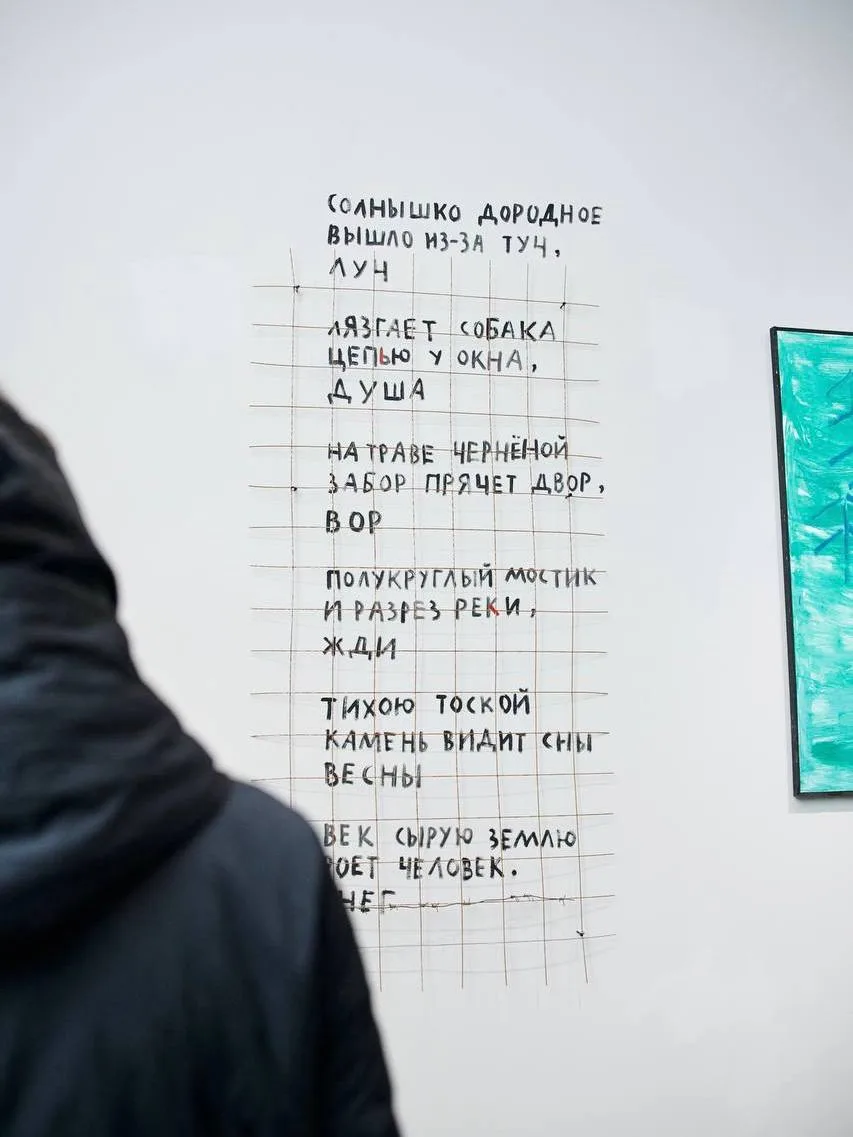 СОЛНЫШКО ДОРОДНОЕ
ВЫШЛО ИЗ-ЗА ТУЧ,
ЛУЧ
ЛЯЗГАЕТ СОБАКА
ЦЕПЬЮ У ОКНА,
ДУША
НА ТРАВЕ ЧЕРНЁНОЙ
ЗАБОР ПРЯЧЕТ ДВОР,
ВОР
ПОЛУКРУГЛЫЙ МОСТИК
И РАЗРЕЗ РЕКИ,
ЖДИ
ТИХОЮ ТОСКОЙ
КАМЕНЬ ВИДИТ СНЫ
ВЕСНЫ
ВЕК СЫРУЮ ЗЕМЛЮ
ЧЕЛОВЕК.